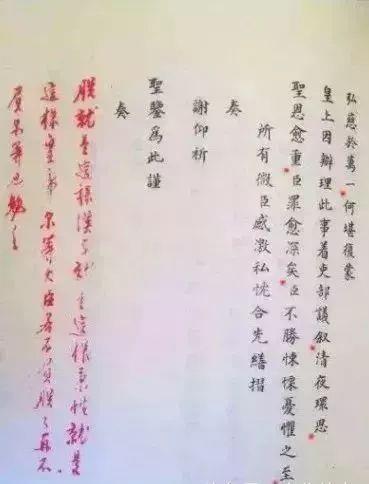 弘慈於萬一何堪復蒙
皇上因辦理此事着吏部議叙清夜環思
聖恩愈重臣罪愈深矣臣不勝悚懷憂懼之至
所有微臣感激私忱合先繕摺
奏
謝仰祈
聖鑒為此謹
奏
朕就是這樣漢子就是這樣秉性就是
這樣皇帝尔等大臣若不負朕朕再不
負尔等也勉之